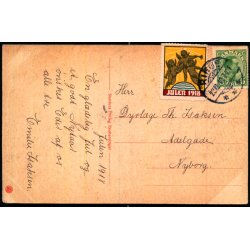 JULEN 1918
Julen 1918
En glædelig Jul og
et godt Nytaar
ønskes Eder af os
alle tre
Emilie Isaksen
Herr
Dyrlæge Th. Isaksen
Adelgade
Nyborg